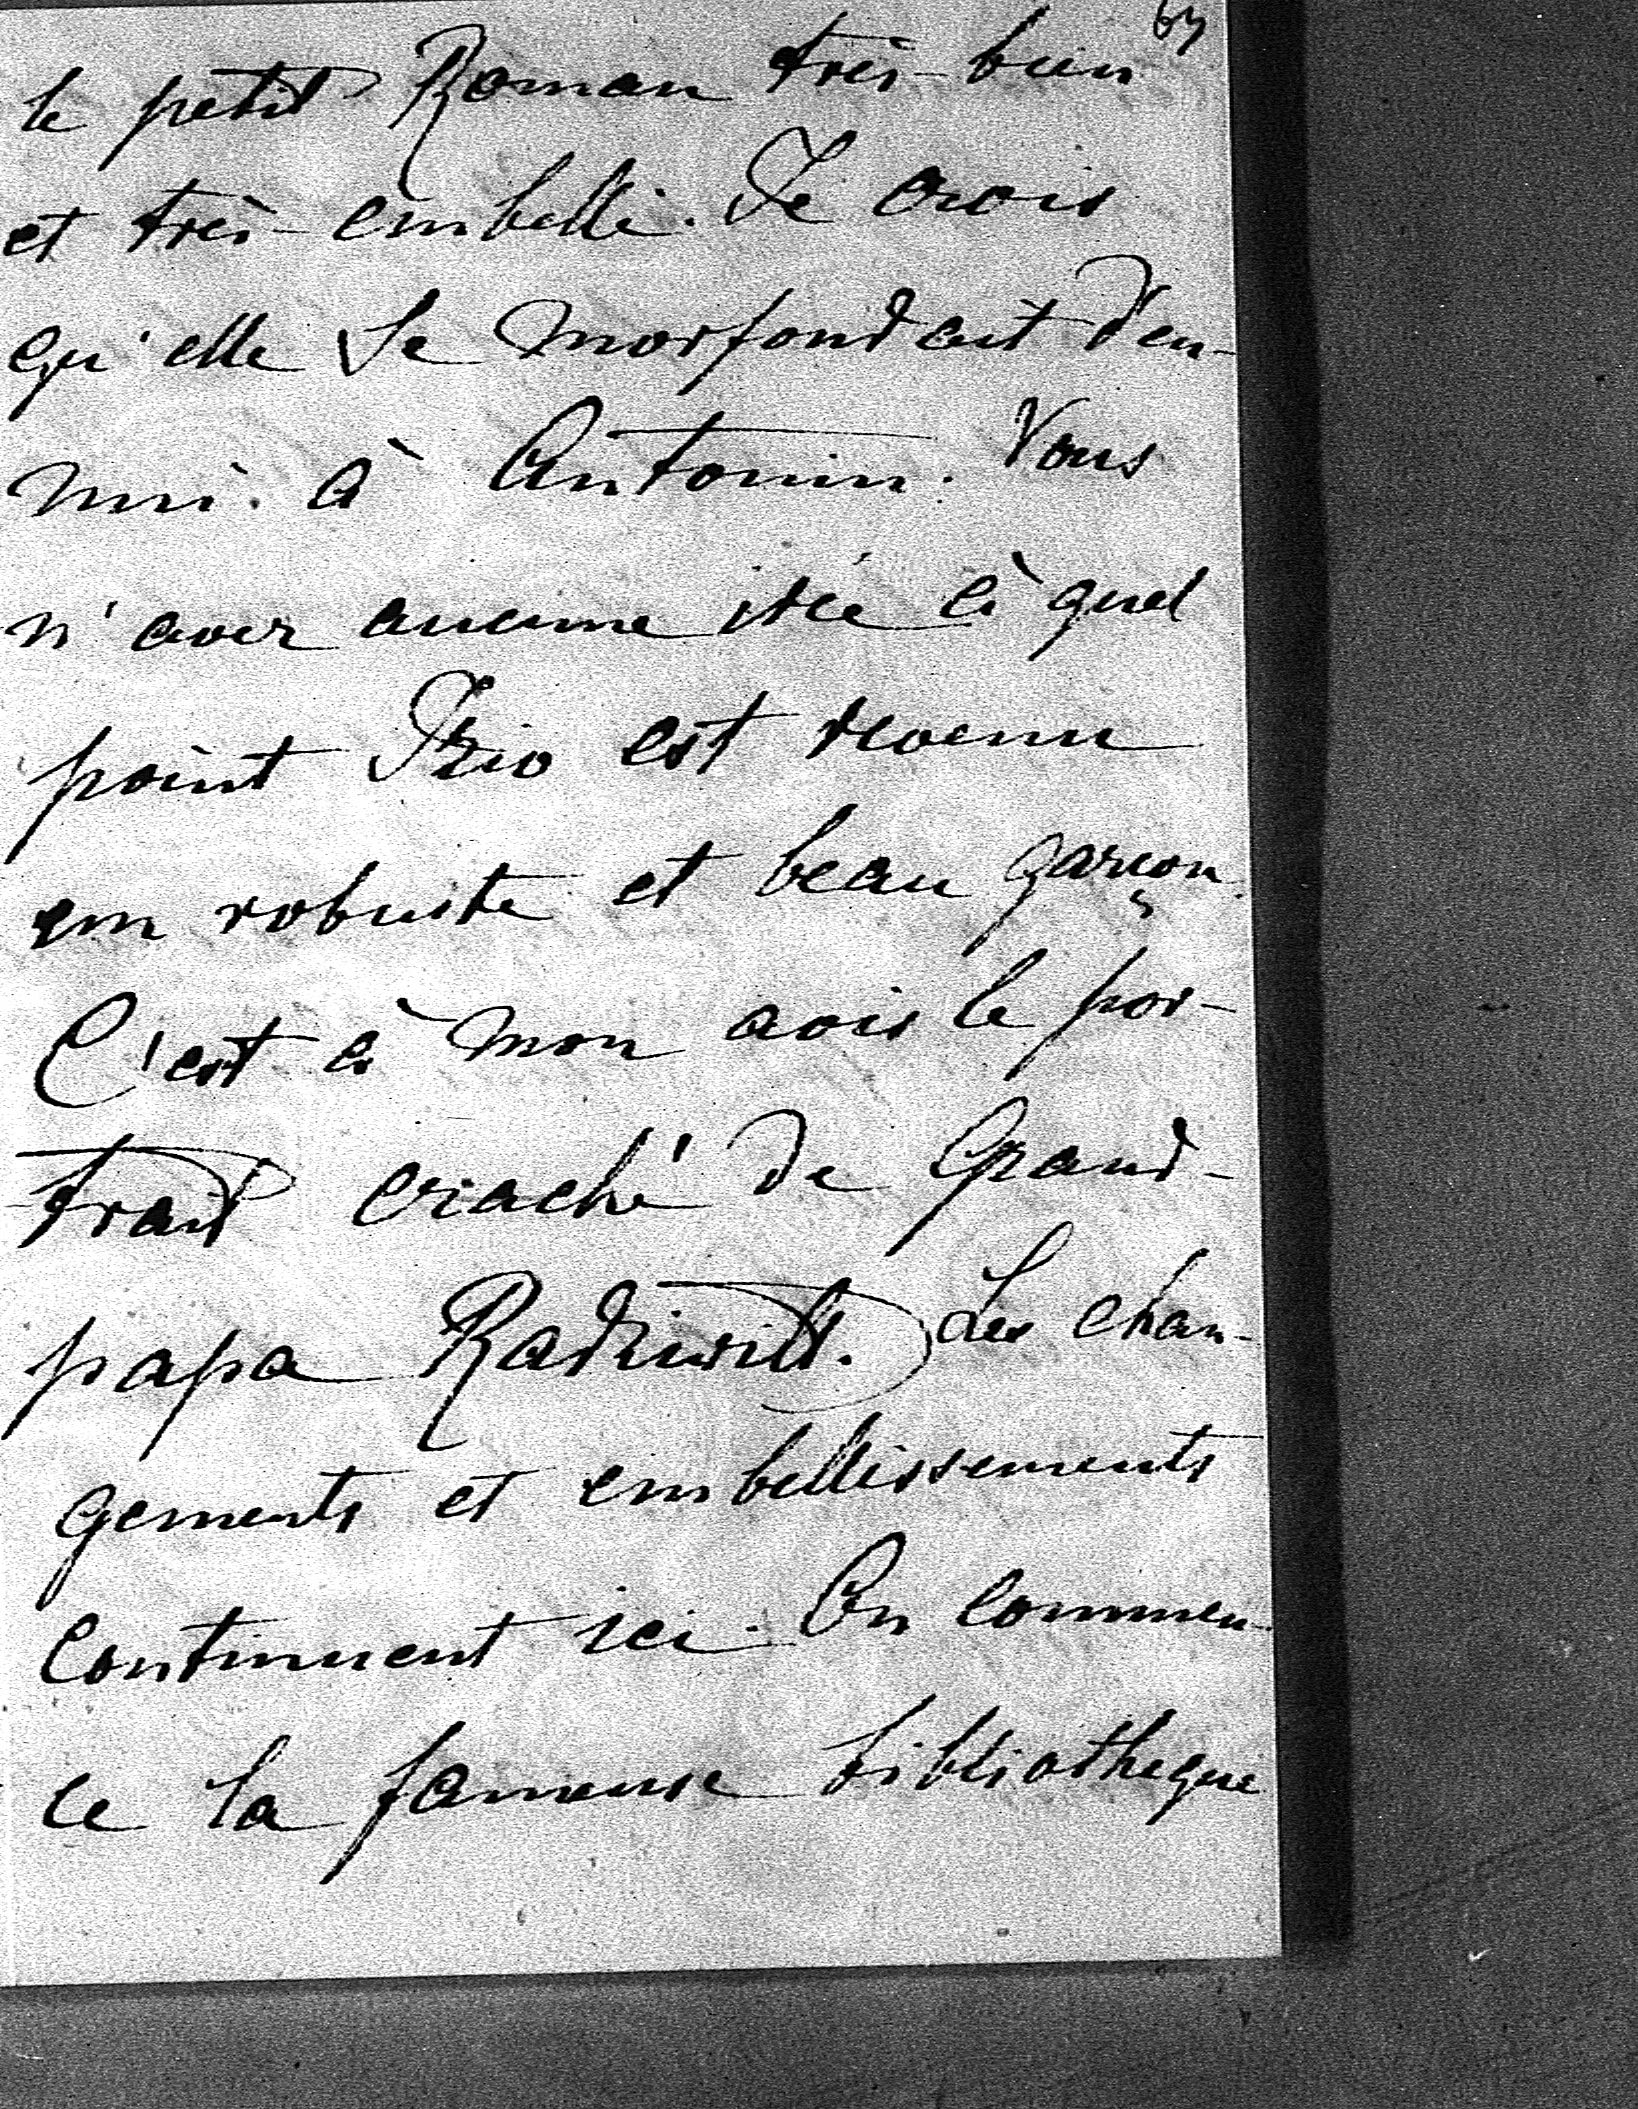 63
le petit Roman très-bien
et très-embelli. Je crois
qu'elle se morfondait d'en-
nui à Antonin. Vous
n'avez aucune idée à quel
point est devenu
un robuste et beau garçon.
C'est à mon avis le por-
trait craché de Grand-
papa Radziwill. Les chan-
gements et embellissements
continuent ici. On commen-
ce la fameuse bibliothèque